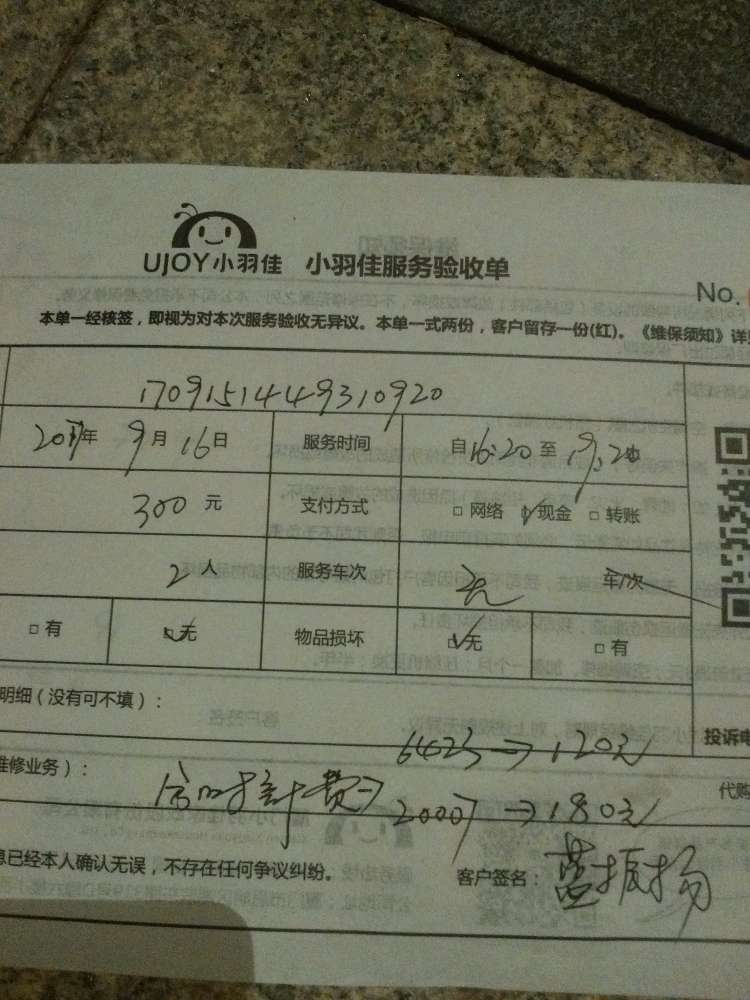 UJOY小羽佳 小羽佳服务验收单
No.
本单一经核签，即视为对本次服务验收无异议。本单一式两份，客户留存一份(红)。《维保须知》详
17091514449310920
2017年 9月16日 服务时间 自16:20至19:20
300元 支付方式 □网络 ☑现金 □转账
2人 服务车次 无 车/次
□有 ☑无 物品损坏 ☑无 □有
明细（没有可不填）：
投诉电
6423→120元
维修业务）：
代购
含时计费→ 20007→180元
息已经本人确认无误，不存在任何争议纠纷。
客户签名：蓝振扬